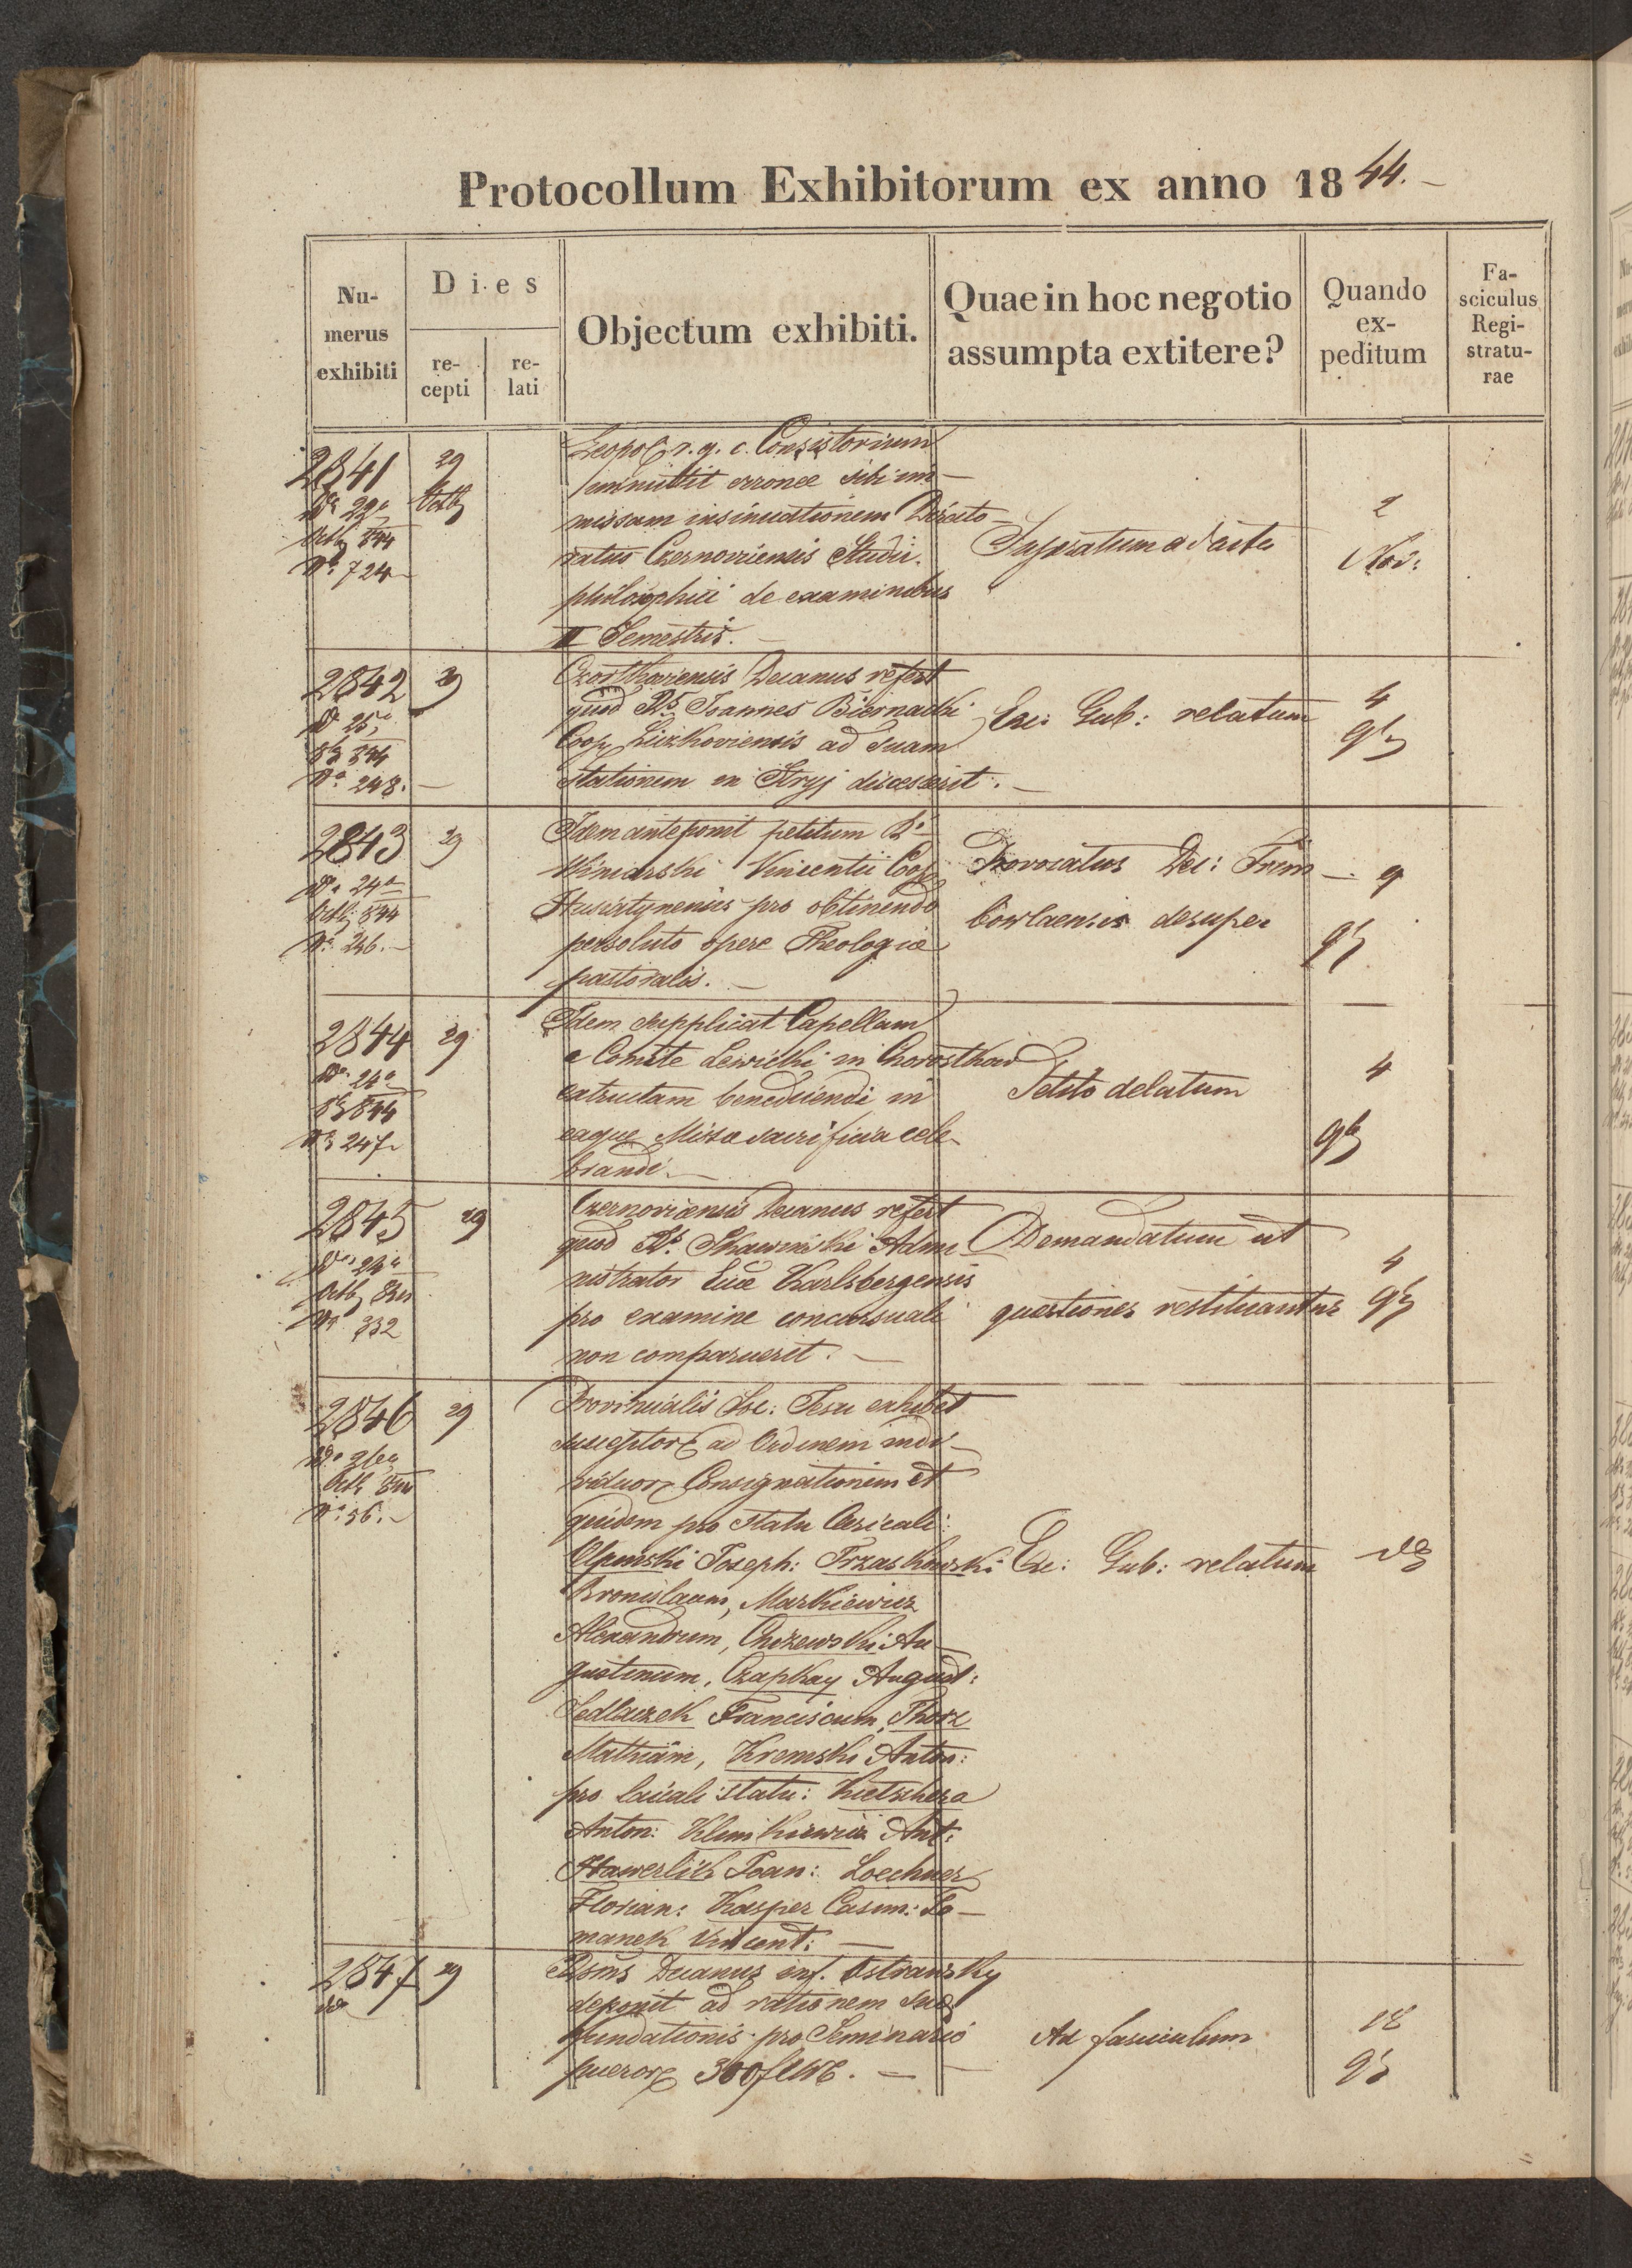 Protocollum Exhibitorum ex anno 1844.
Numerus exhibiti
Dies
recepti
relati
Objectum exhibiti.
Quae in hoc negotio assumpta extitere?
Quando expeditum
Fasciculus Registraturae
2841
29
Octb
Nº 724
Leopol r. g. c. Consistorium
erronee sibi im-
missam insinuationem Directo-
ratus Czernoviensis Studii
philosophici de examinibus
II Semestris.
ad acta
2
Nov:
2842
29
Nº 248.
Czortkoviensis Decanus refert
quod Rs Joannes Biernacki
Coop Liczkoviensis ad suam
stationem in Stryj discesserit.
Exc: Gub: relatum
4
9b
2843
29
Dº 24ª
Octb: 844
Nº 246.
Idem anteponit petitum Rº
Winiarski Vincentii Coop
Husiatynensis pro obtinendo
persoluto opere Theologiae
pastoralis.
Provocatus Dec: Trem-
bowlaensis desuper
9
9b
2844
29
Dº 24ª
8b 844
Nº 247
Idem supplicat Capellam
a Comite Lewicki in Chorostkow
extructam benedicendi in
eaque Missae sacrificia cele-
brandi.
Petito delatum
4
9b
2845
29
Octb 844
Nº 332
Czernoviensis Decanus refert
quod Rs. Skawinski Admi
nistrator Eccae Karlsbergensis
pro examine concursuali
non comparuerit.
Demandatum ut
questiones restituantur
4
9b
2846
29
Octb 844
Nº 56.
Provincialis Soc: Jesu exhibet
susceptor ad Ordinem indi-
viduor Consignationem et
quidem pro statu Clericali:
Olpinski Joseph: Trzaskowski
Bronislaum, Markiewicz
Alexandrum, Chizewski Au-
gustinum, Czapkay August:
Sedlaczek Franciscum, Thorz
Mathiam, Kremski Anton:
pro laicali statu: Kietschera
Anton: Klimkiewicz Ant:
Hawerlik Joan: Loechner
Florian: Kasper Casim: Se-
manek Vincent:
Exc: Gub: relatum
2847
29
Rdsms Decanus inf. Ostrawsky
deponit ad rationem suae
fundationis pro Seminario
pueror 300 fl WE.
Ad fasciculum
18
9b